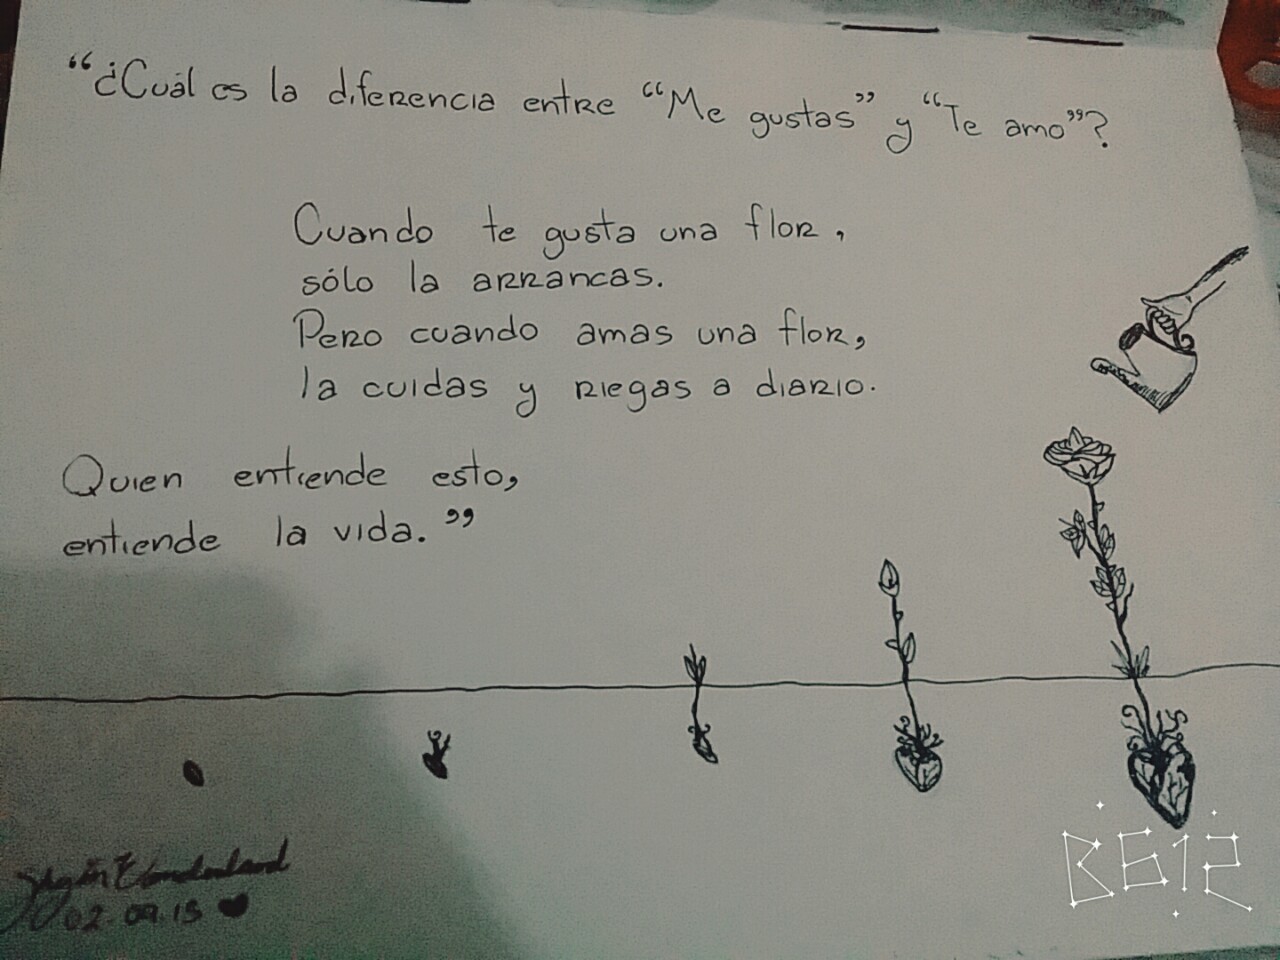 “¿Cuál es la diferencia entre “Me gustas” y “Te amo”?
Cuando te gusta una flor,
sólo la arrancas.
Pero cuando amas una flor,
la cuidas y riegas a diario.
Quien entiende esto,
entiende la vida.”
02.09.15
B612